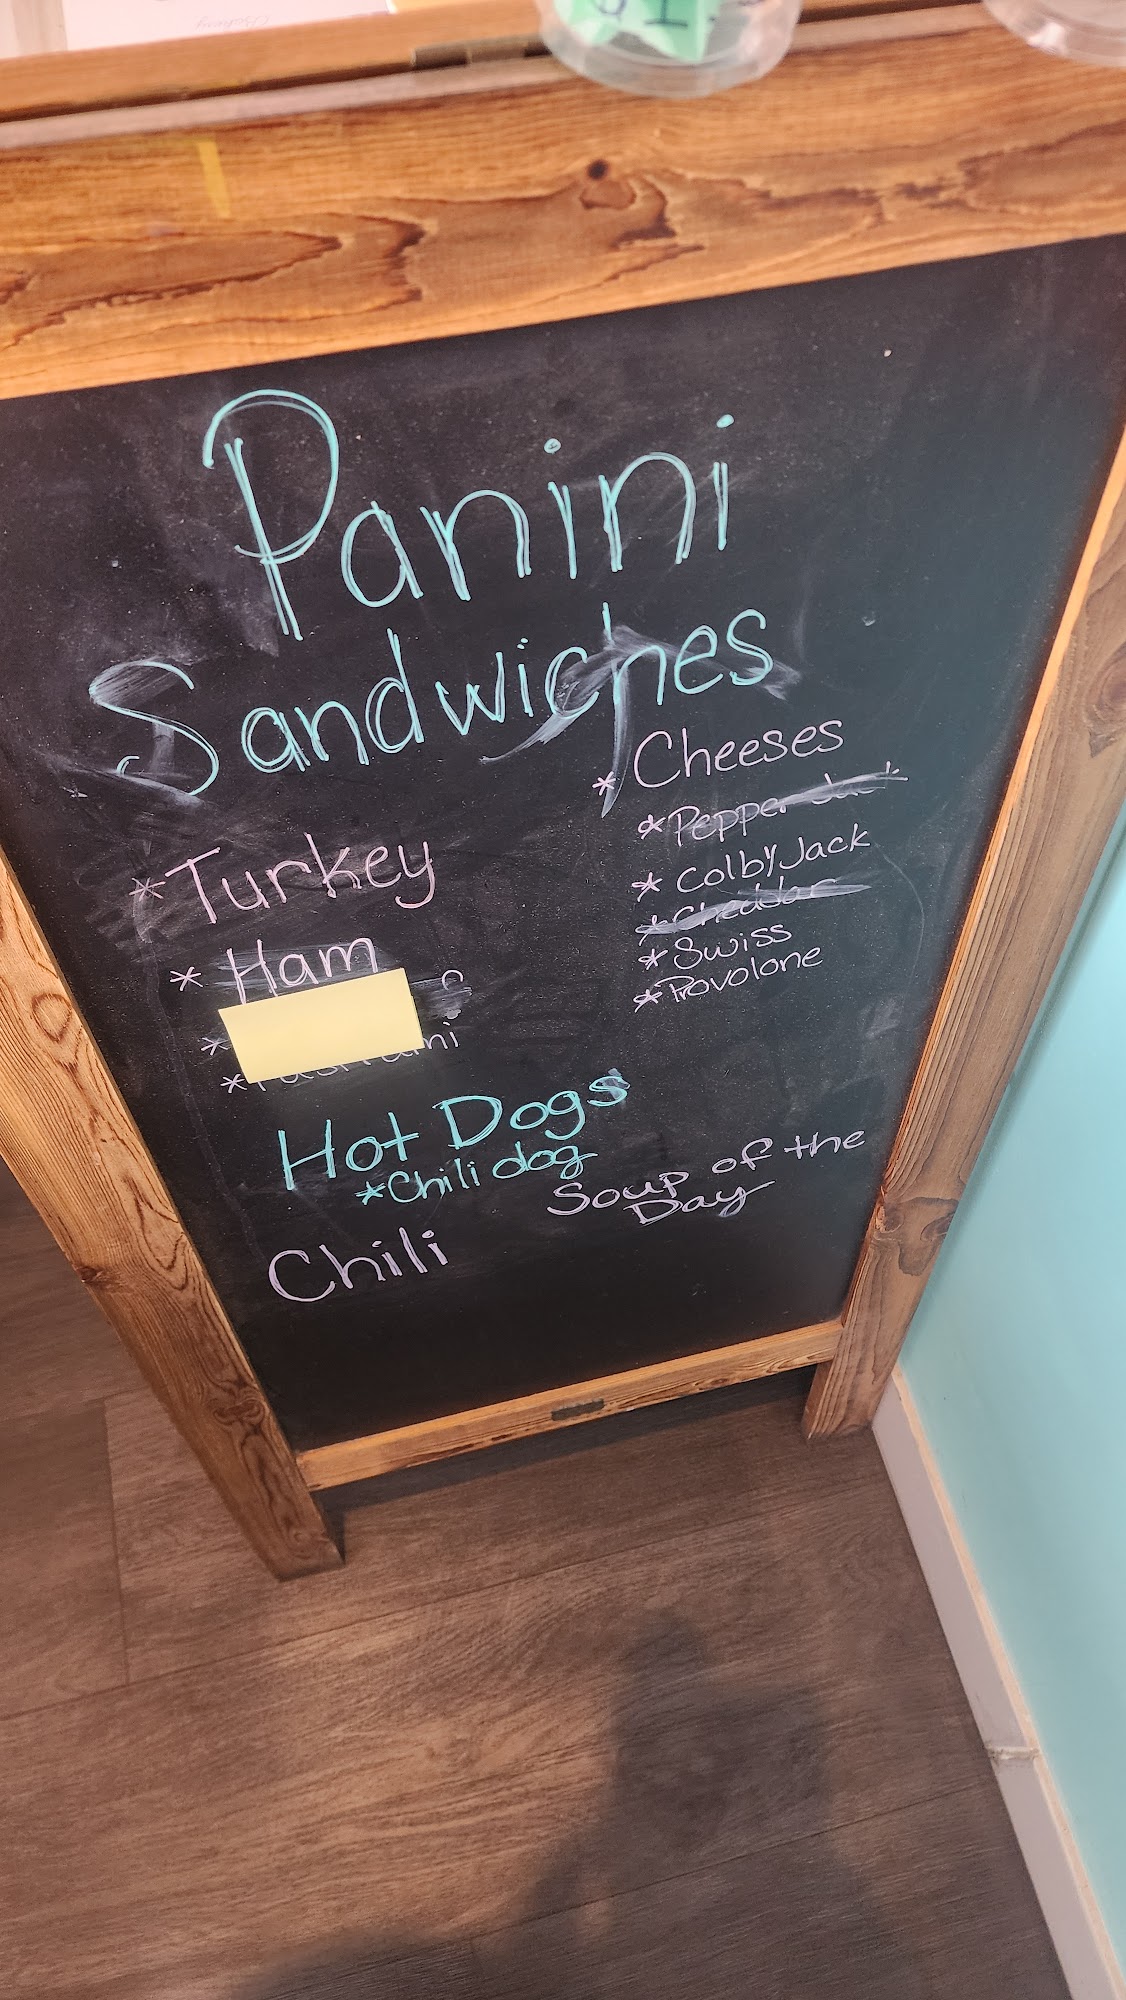 Panini
Sandwiches
* Turkey
* Ham
*
*
* Cheeses
* Pepper Jack
* Colby Jack
* Cheddar
* Swiss
* Provolone
Hot Dogs
* Chili dog
Soup of the
Day
Chili